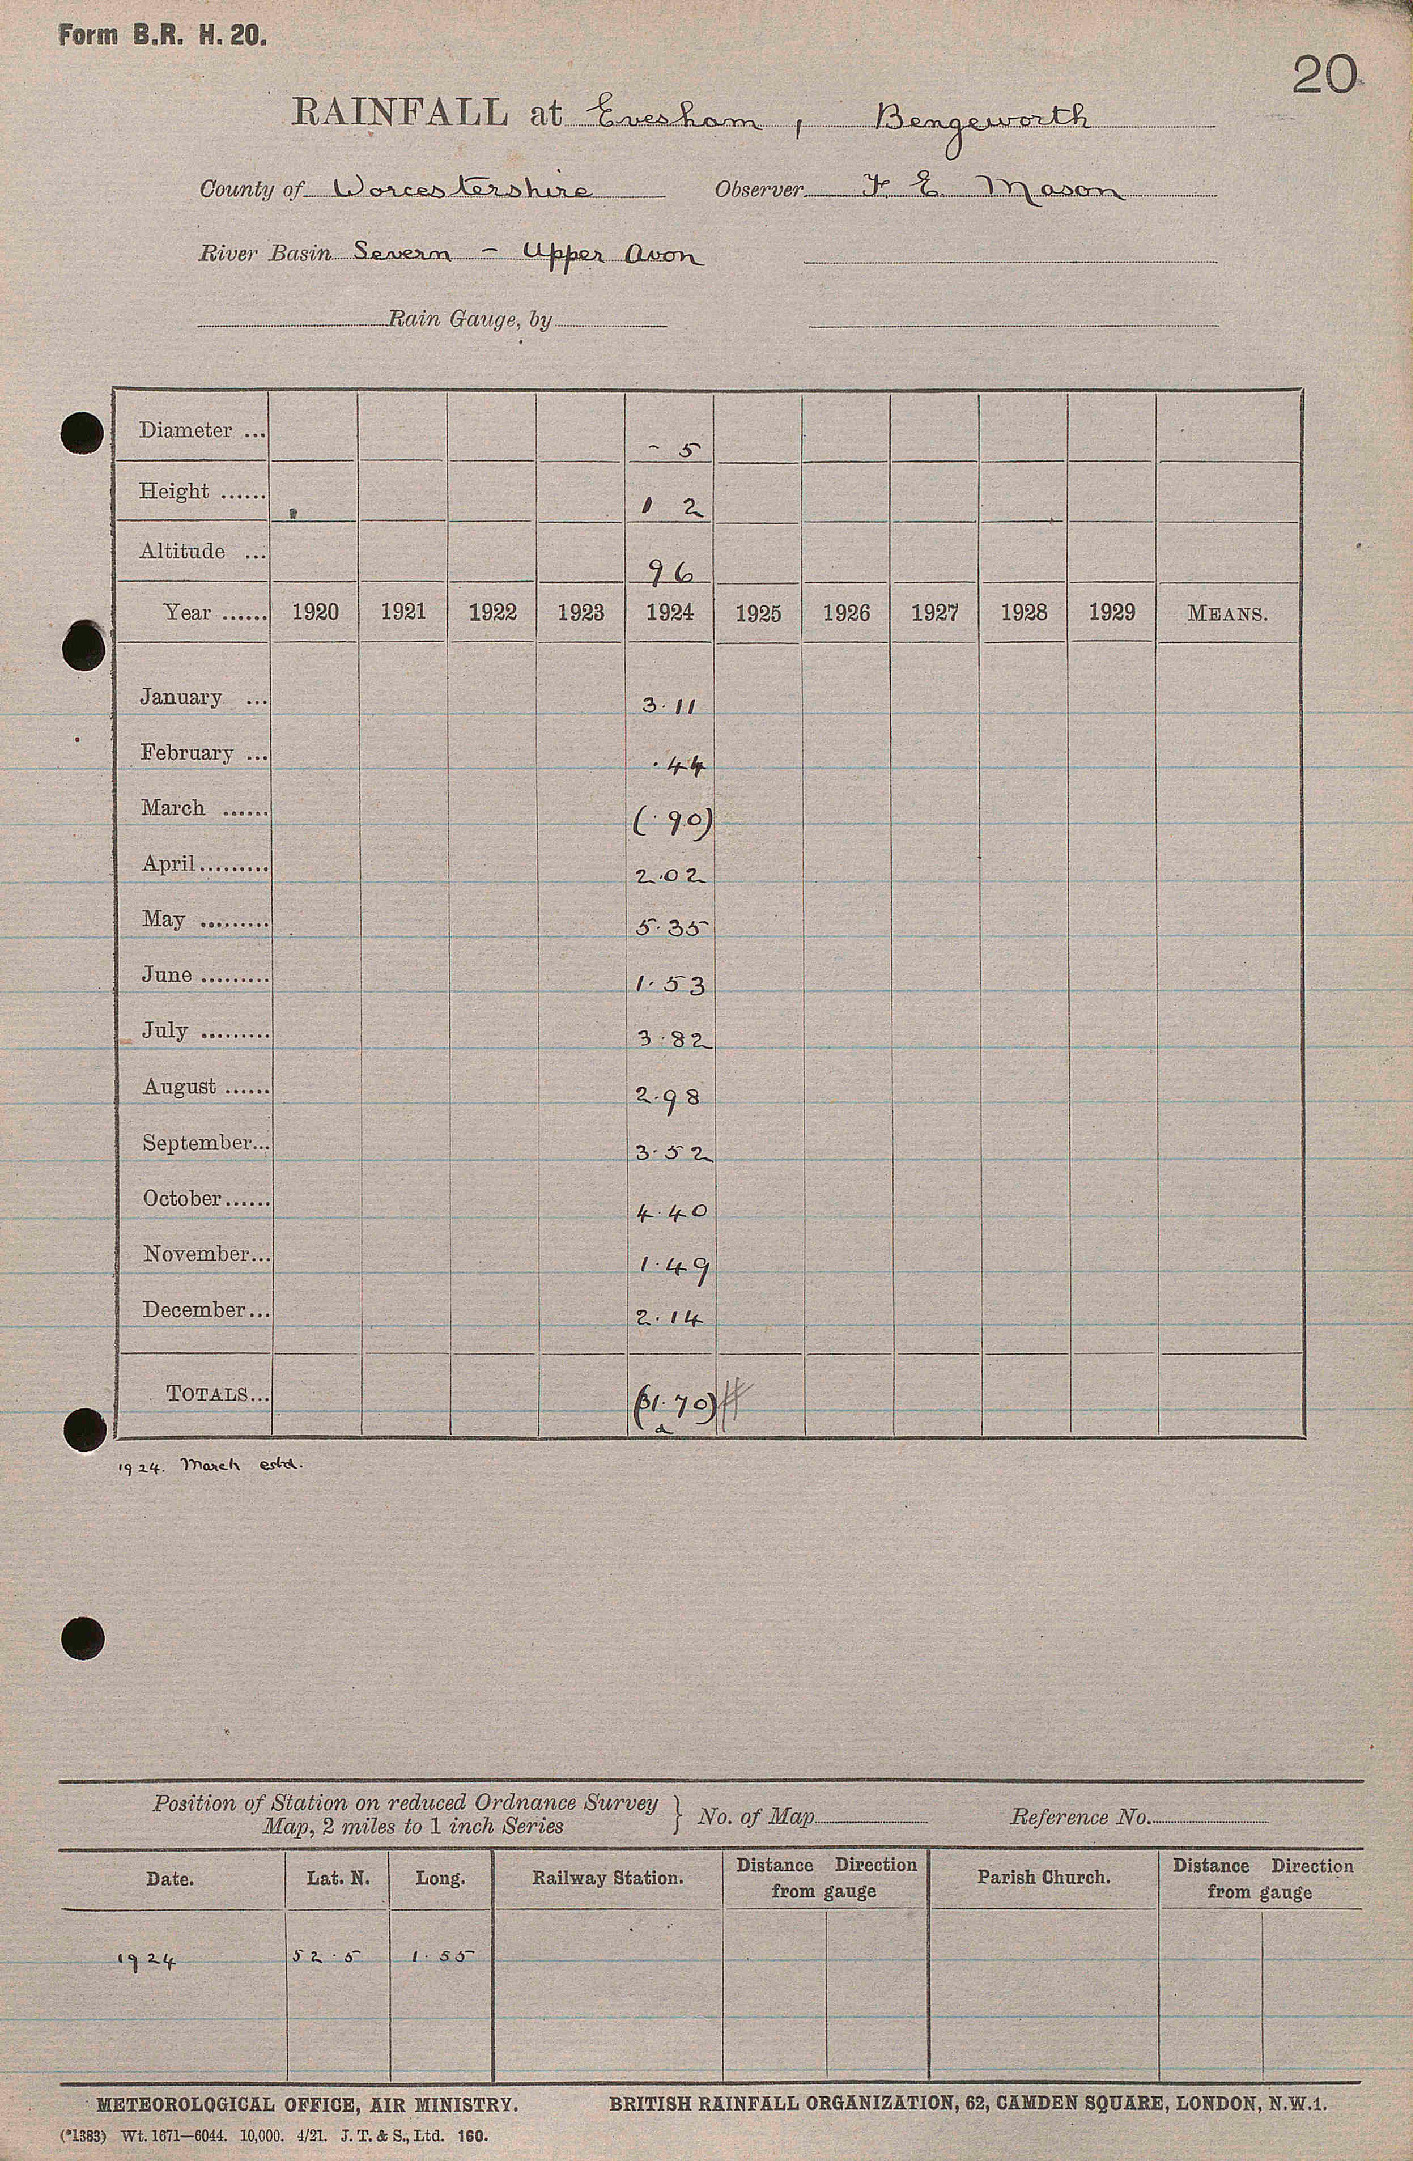 Form B.R. H. 20.
20
RAINFALL at Evesham, Bengeworth
County of Worcestershire Observer F. E. Mason
River Basin Severn - Upper Avon
Rain Gauge, by
Diameter ... - 5
Height ...... 1 2
Altitude ... 96
Year ...... 1920 1921 1922 1923 1924 1925 1926 1927 1928 1929 MEANS.
January ... 3.11
February ... .44
March ...... (.90)
April ......... 2.02
May ......... 5.35
June ......... 1.53
July ......... 3.82
August ...... 2.98
September... 3.52
October ...... 4.40
November... 1.49
December... 2.14
TOTALS... (31.70) #
a
1924. March estd.
Position of Station on reduced Ordnance Survey
Map, 2 miles to 1 inch Series } No. of Map Reference No.
Date. Lat. N. Long. Railway Station. Distance Direction from gauge Parish Church. Distance Direction from gauge
1924 52.5 1.55
METEOROLOGICAL OFFICE, AIR MINISTRY. BRITISH RAINFALL ORGANIZATION, 62, CAMDEN SQUARE, LONDON, N.W.1.
(*1383) Wt. 1671—6044. 10,000. 4/21. J. T. & S., Ltd. 160.